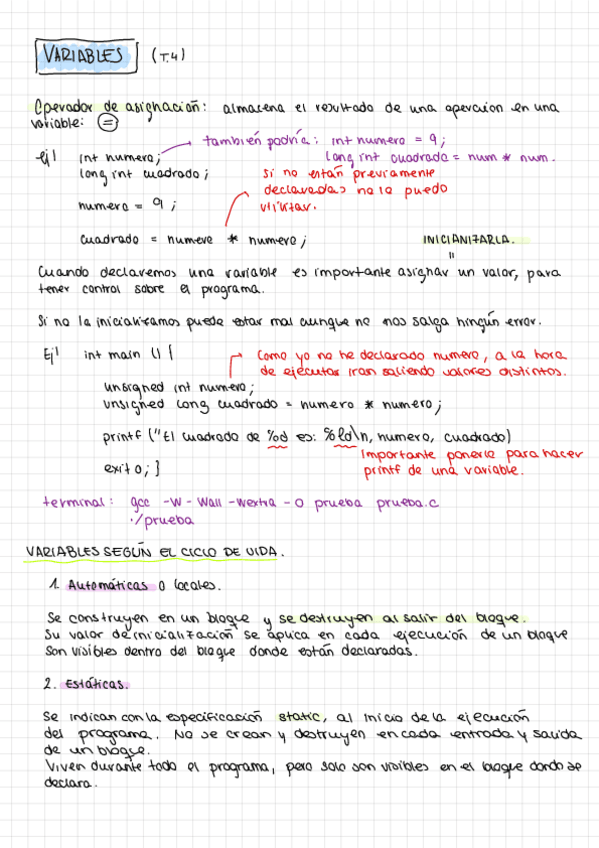 VARIABLES (T.4)
Operador de asignación: almacena el resultado de una operación en una
variable: =
ej! int numero; → también podría: int numero = 9;
long int cuadrado = num * num.
long int cuadrado;
si no están previamente
declaradas no la puedo
utilizar.
numero = 9;
cuadrado = numero * numero;
INICIANIZARLA.
"
Cuando declaremos una variable es importante asignar un valor, para
tener control sobre el programa.
Si no la inicializamos puede estar mal aunque no nos salga ningún error.
Ej! int main () {
Como yo no he declarado numero, a la hora
de ejecutar iran saliendo valores distintos.
unsigned int numero;
unsigned long cuadrado = numero * numero;
printf ("El cuadrado de %d es: %ld\n, numero, cuadrado)
Importante ponerle para hacer
printf de una variable.
exit 0; }
terminal: gcc -W -Wall -Wextra -O prueba prueba.c
./prueba
VARIABLES SEGÚN EL CICLO DE VIDA.
1. Automáticas o locales.
Se construyen en un bloque y se destruyen al salir del bloque.
Su valor de inicialización se aplica en cada ejecución de un bloque
Son visibles dentro del bloque donde están declaradas.
2. Estáticas.
Se indican con la especificación static, al inicio de la ejecución
del programa. No se crean y destruyen en cada entrada y salida
de un bloque.
Viven durante todo el programa, pero solo son visibles en el bloque donde se
declara.